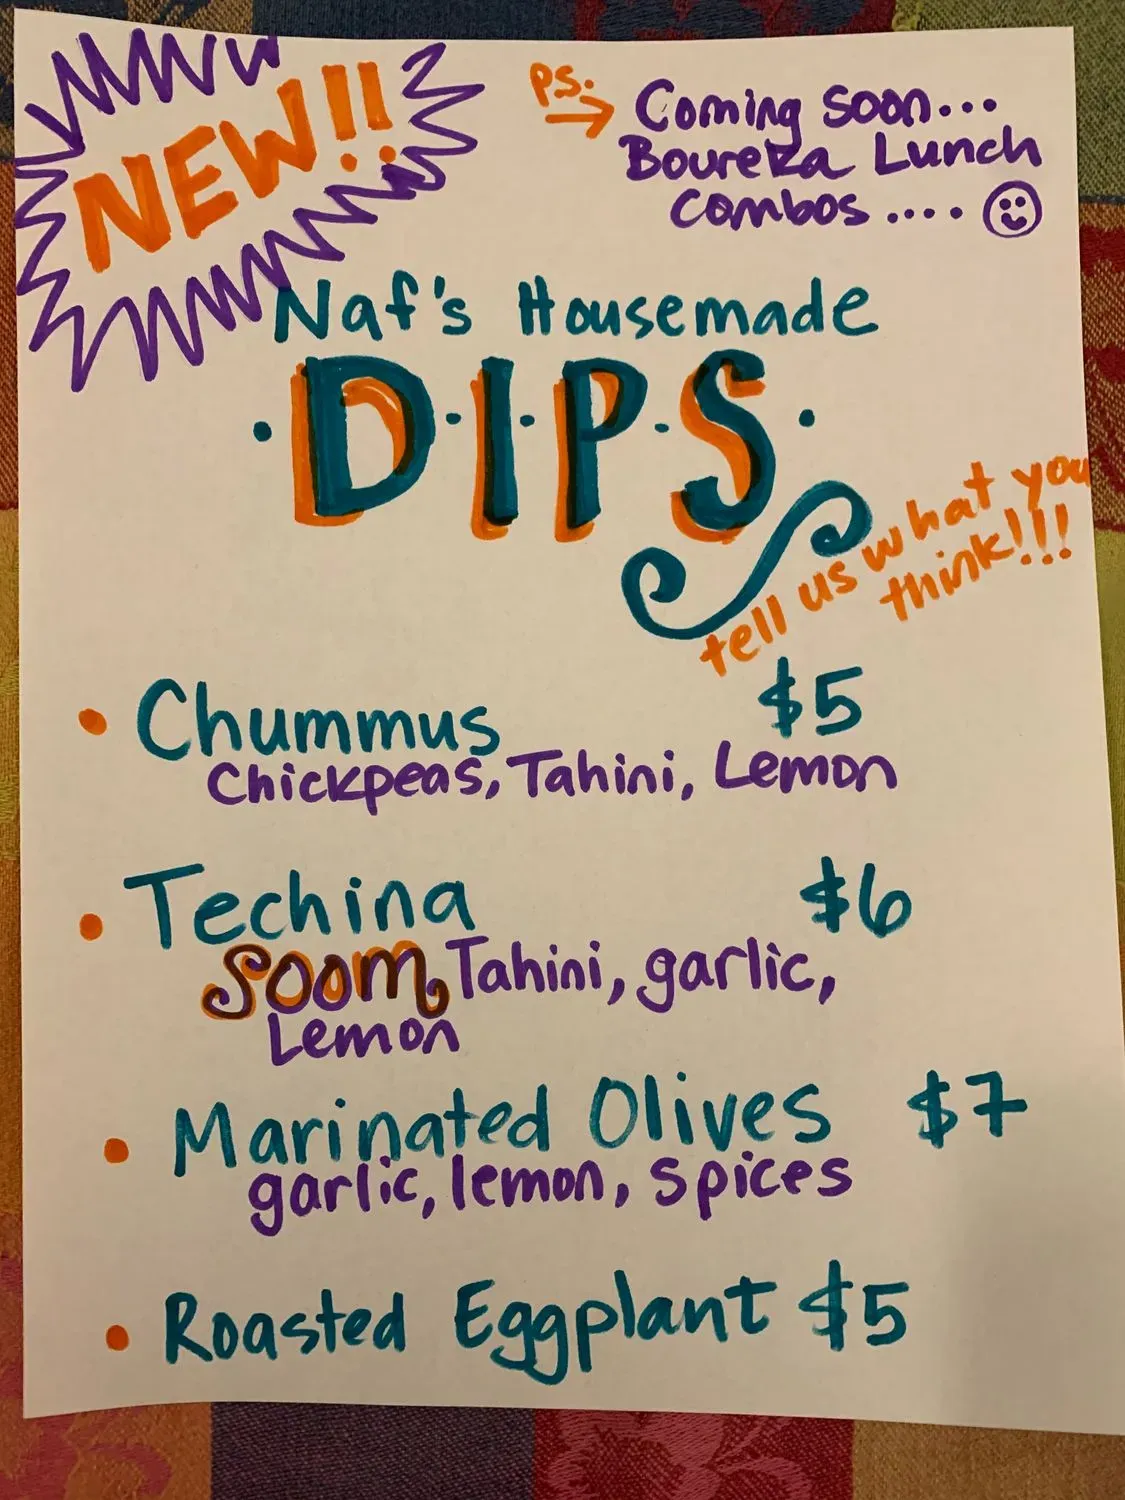 NEW!!
Ps. → Coming Soon...
Boureka Lunch
Combos ....
Naf's Housemade
·D·I·P·S·
tell us what you
think!!!
• Chummus $5
Chickpeas, Tahini, Lemon
• Techina $6
Soom Tahini, garlic,
Lemon
• Marinated Olives $7
garlic, lemon, spices
• Roasted Eggplant $5